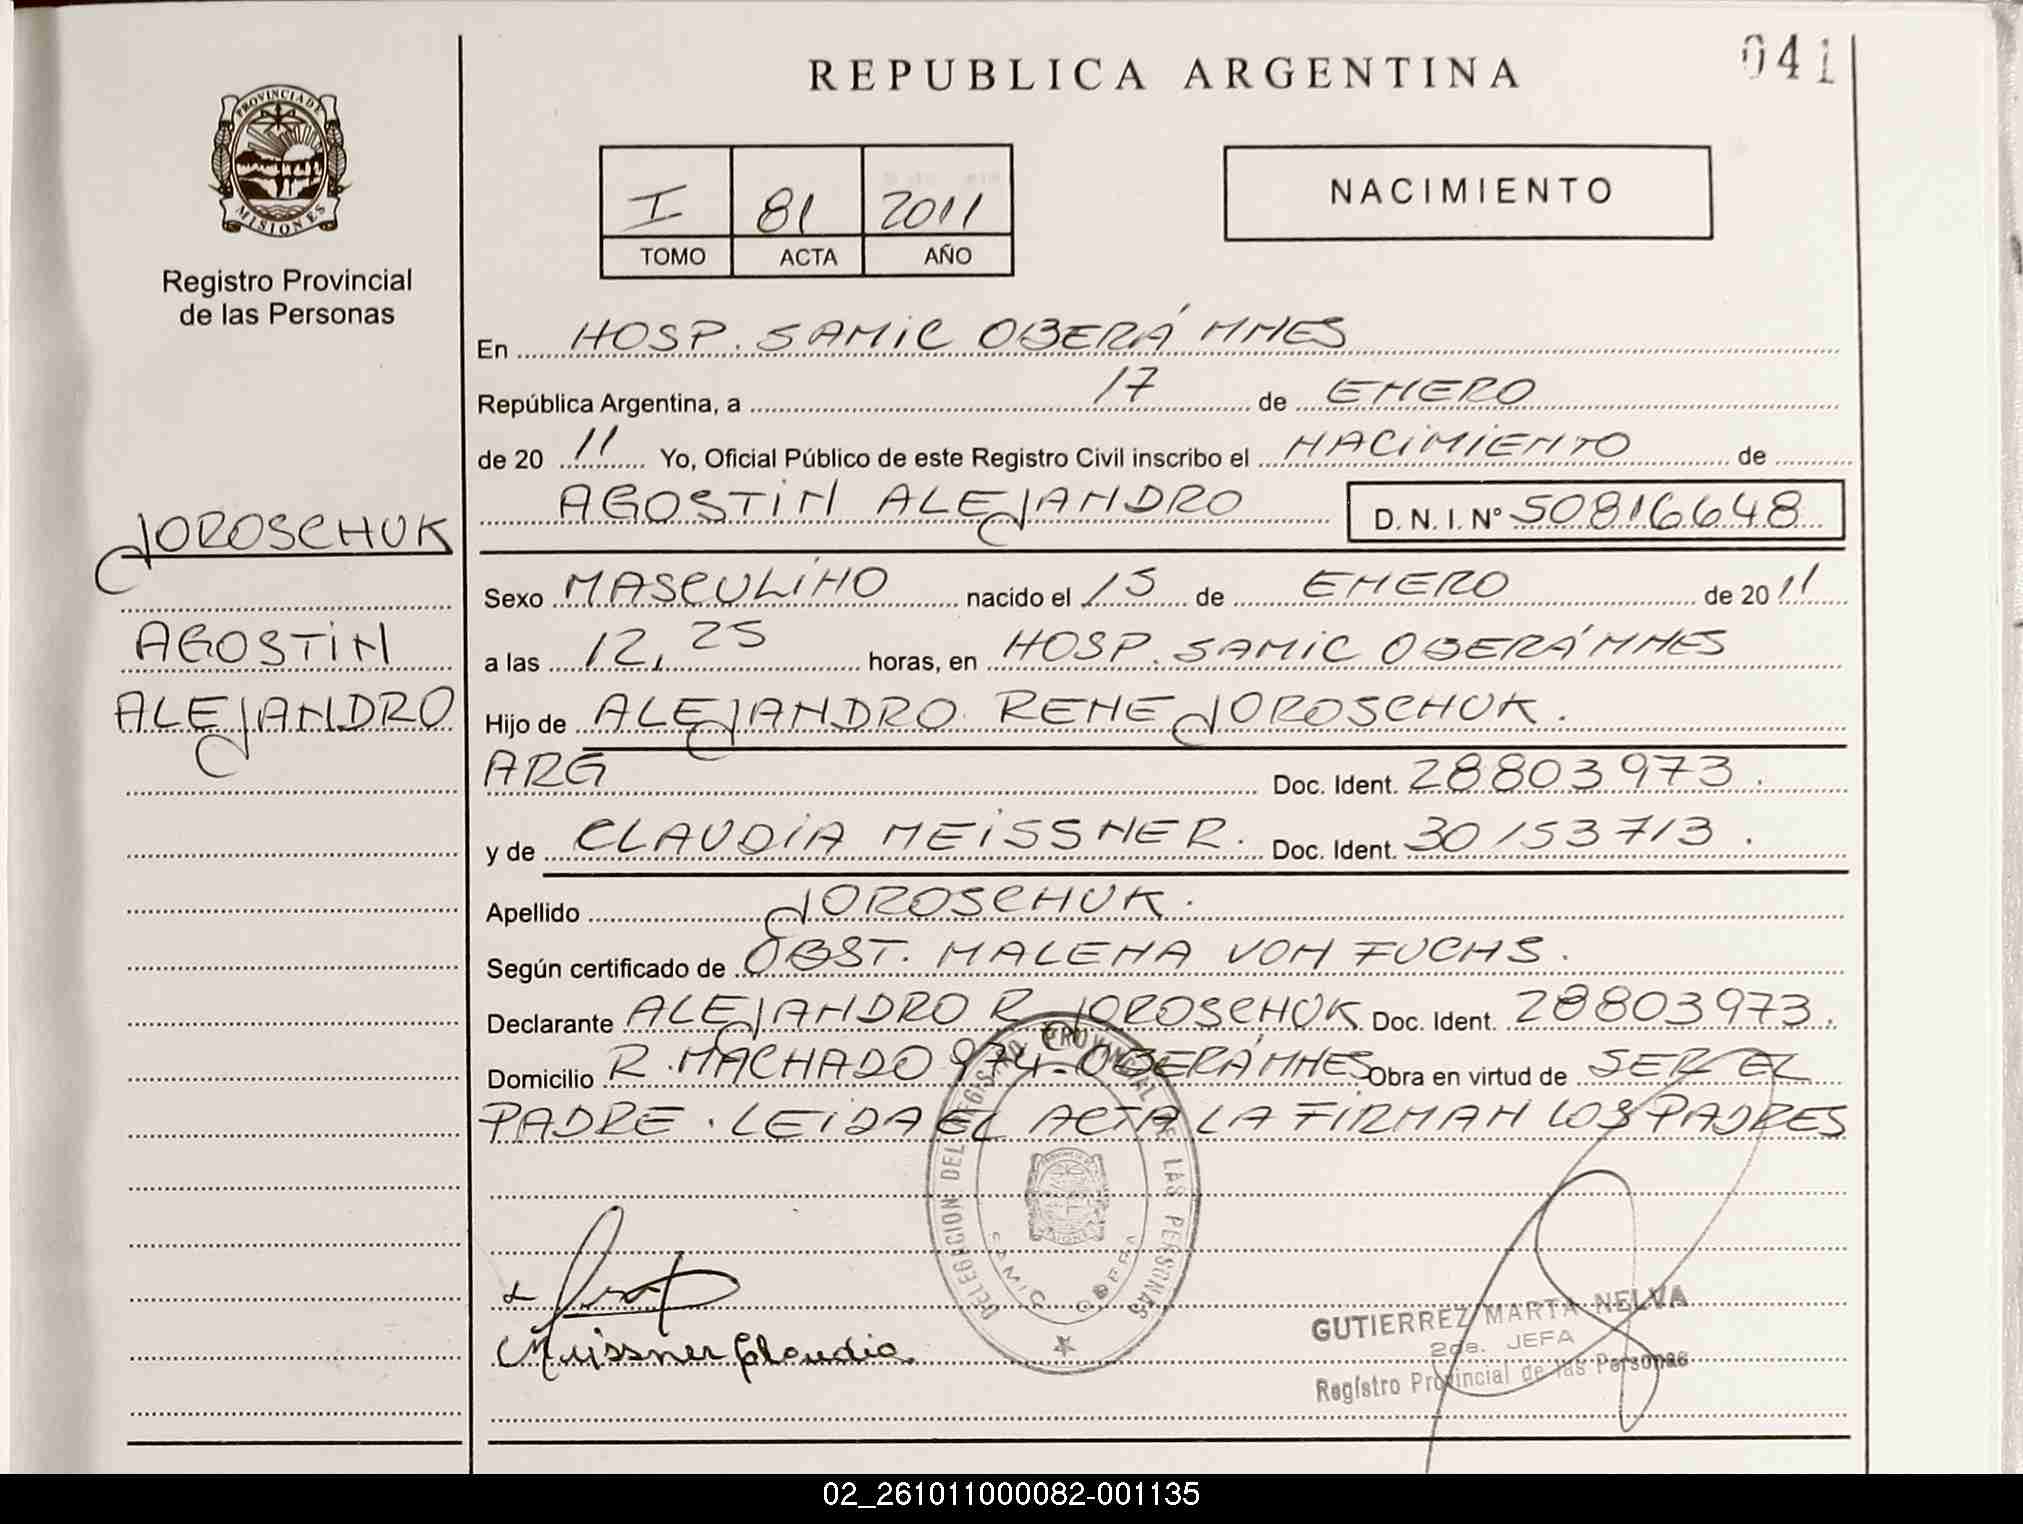 041
REPUBLICA ARGENTINA
PROVINCIA DE
MISIONES
Registro Provincial
de las Personas
I 81 2011
TOMO ACTA AÑO
NACIMIENTO
En HOSP. SAMIC OBERÁ MNES
República Argentina, a 17 de ENERO
de 20 11 Yo, Oficial Público de este Registro Civil inscribo el NACIMIENTO de
AGOSTIN ALEJANDRO D. N. I. N° 50816648
JOROSCHUK
AGOSTIN
ALEJANDRO
Sexo MASCULINO nacido el 15 de ENERO de 20 11
a las 12,25 horas, en HOSP. SAMIC OBERÁ MNES
Hijo de ALEJANDRO RENE JOROSCHUK.
ARG Doc. Ident. 28803973.
y de CLAUDIA MEISSNER. Doc. Ident. 30153713.
Apellido JOROSCHUK.
Según certificado de OBST. MALENA VON FUCHS.
Declarante ALEJANDRO R JOROSCHUK Doc. Ident. 28803973.
Domicilio R. MACHADO 974-OBERÁ MNES Obra en virtud de SER EL
PADRE. LEIDA EL ACTA LA FIRMAN LOS PADRES
DELEGACION DEL REGISTRO PROVINCIAL DE LAS PERSONAS
SAMIC OBERA
Meissner Claudia
GUTIERREZ MARTA NELVA
2da. JEFA
Registro Provincial de las Personas
02_261011000082-001135